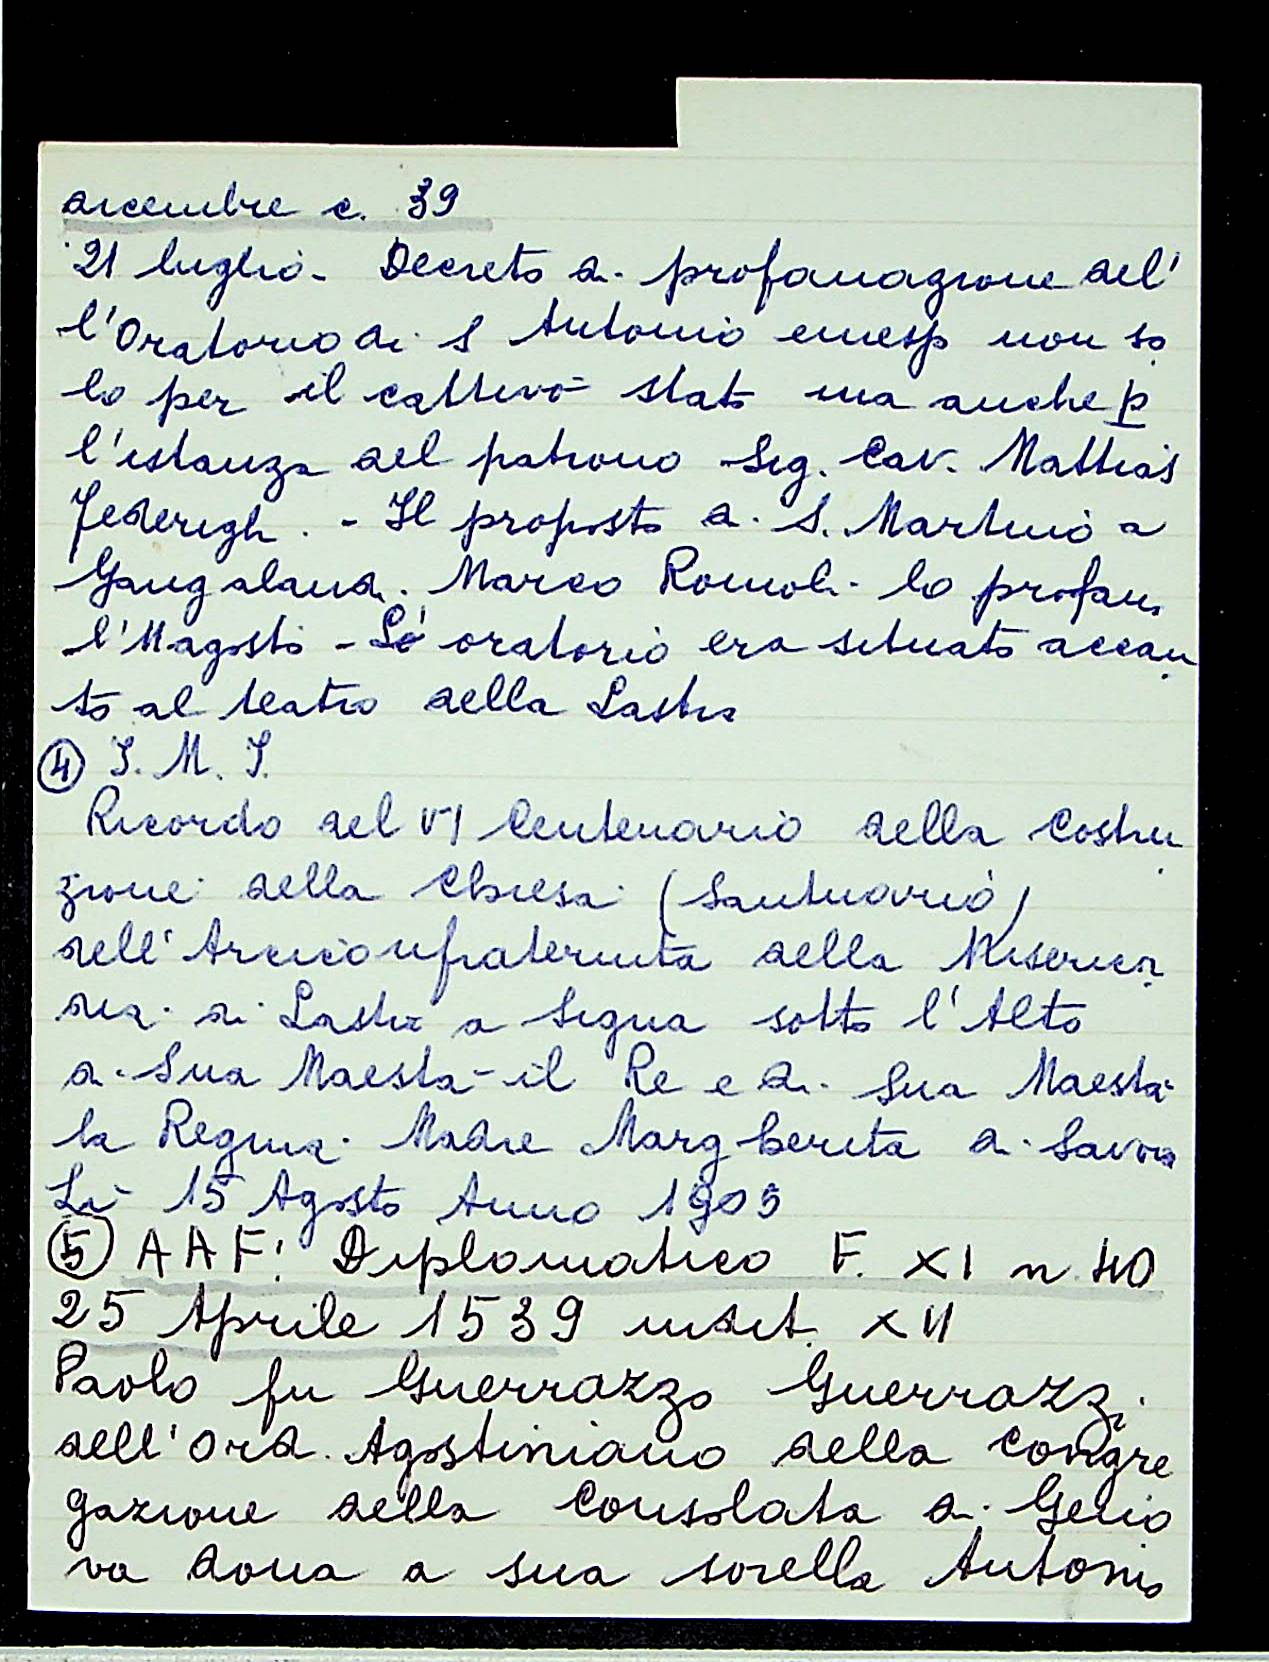 dicembre c. 39
21 luglio - Decreto di profanazione del'
l'Oratorio di S Antonio
non so
lo per il cattivo stato ma anche p
l'istanza del patrono Sig. Cav. Mattias
Federighi. - Il proposto di S. Martino a
Gangalandi. Marco Romoli lo profanò
l'11 agosto - L'oratorio era situato accan
to al teatro della Lastra
④ J. M. J.
Ricordo del VI Centenario della Costru
zione della Chiesa (Santuario)
dell'Arciconfraternita della Misericor
dia di Lastra a Signa sotto l'Alto
di Sua Maestà il Re e di Sua Maestà
la Regina Madre Margherita di Savoia
Li 15 Agosto Anno 1905
⑤ AAF: Diplomatico F. XI n. 40
25 Aprile 1539 inset. XII
Paolo fu Guerrazzo Guerrazzi
dell'Ord. Agostiniano della Congre
gazione della Consolata di Geno
va dona a sua sorella Antonia